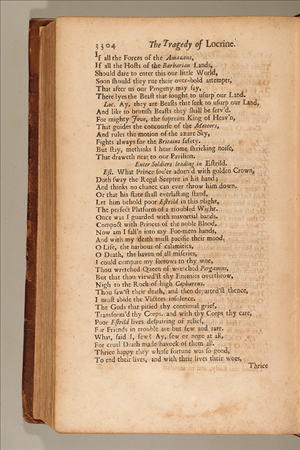 3304 The Tragedy of Locrine.
If all the Forces of the Amazons,
If all the Hosts of the Barbarian Lands,
Should dare to enter this our little World,
Soon should they rue their over-bold attempts,
That after us our Progeny may say,
There lyes the Beast that sought to usurp our Land.
Loc. Ay, they are Beasts that seek to usurp our Land,
And like to brutish Beasts they shall be serv'd.
For mighty Jove, the supream King of Heav'n,
That guides the concourse of the Meteors,
And rules the motion of the azure Sky,
Fights always for the Britains safety.
But stay, methinks I hear some shricking noise,
That draweth near to our Pavilion.
Enter Soldiers leading in Estrild.
Est. What Prince soe'er adorn'd with golden Crown,
Doth sway the Regal Scepter in his hand;
And thinks no chance can ever throw him down,
Or that his state shall everlasting stand,
Let him behold poor Estrild in this plight,
The perfect Platform of a troubled Wight.
Once was I guarded with mavortial bands,
Compact with Princes of the noble Blood,
Now am I fall'n into my Foe-mens hands,
And with my death must pacifie their mood,
O Life, the harbour of calamities,
O Death, the haven of all miseries,
I could compare my sorrows to thy woe,
Thou wretched Queen of wretched Pergamus,
But that thou view'dst thy Enemies overthrow,
Nigh to the Rock of high Caphareus.
Thou saw'st their death, and then departed'st thence,
I must abide the Victors insolence.
The Gods that pitied thy continual grief,
Transform'd thy Corps, and with thy Corps thy care,
Poor Estrild lives despairing of relief,
For Friends in trouble are but few and rare.
What, said I, few? Ay, few or none at all,
For cruel Death made havock of them all.
Thrice happy they whose fortune was so good,
To end their lives, and with their lives their woes,
Thrice